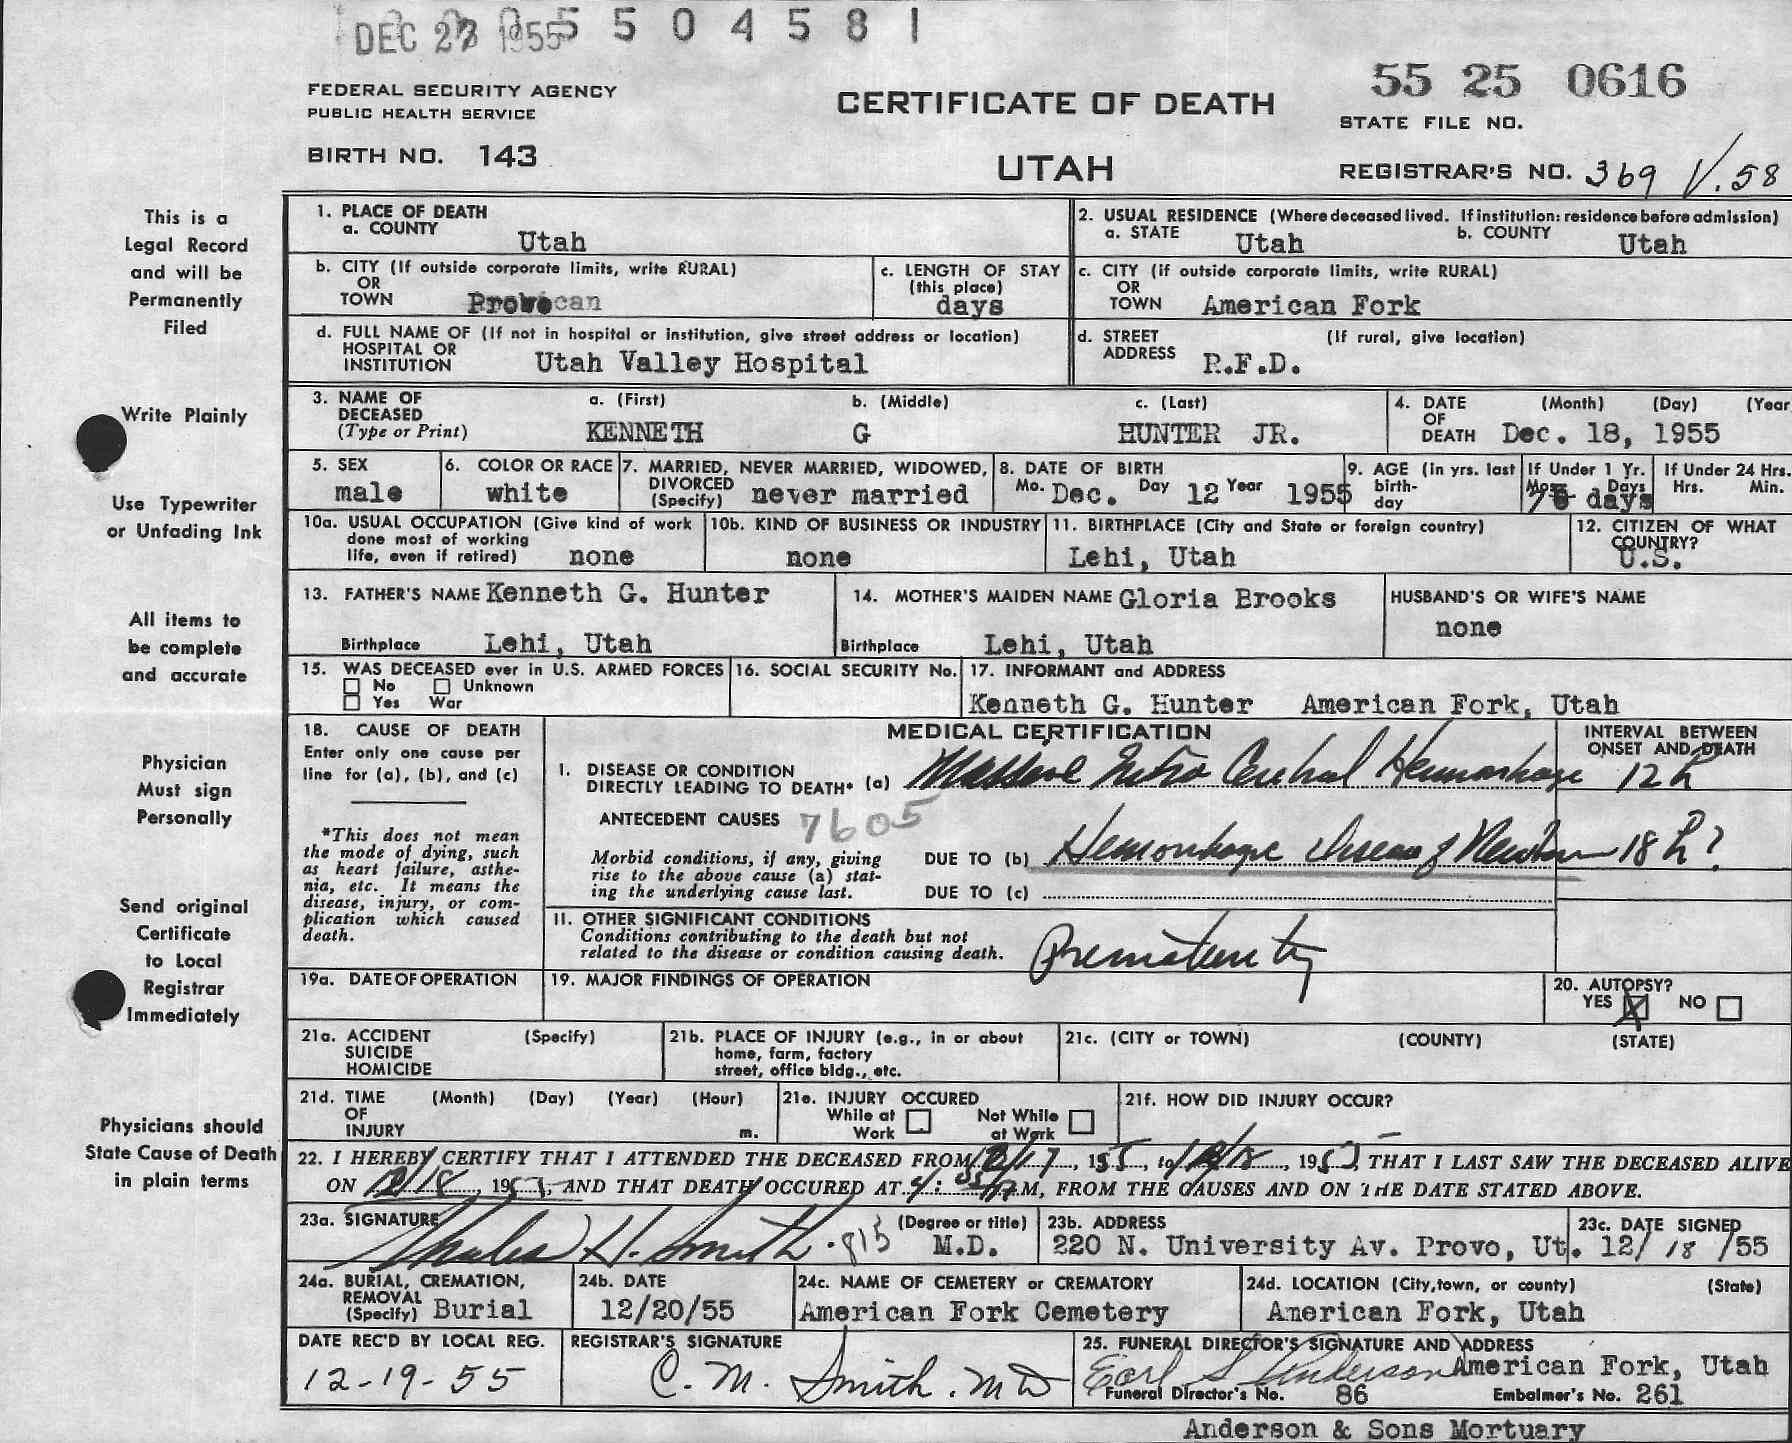 DEC 27 1955 5 5 0 4 5 8 1
55 25 0616
FEDERAL SECURITY AGENCY
PUBLIC HEALTH SERVICE
CERTIFICATE OF DEATH
STATE FILE NO.
BIRTH NO. 143
UTAH
REGISTRAR'S NO. 369 V.58
This is a
Legal Record
and will be
Permanently
Filed
Write Plainly
Use Typewriter
or Unfading Ink
All items to
be complete
and accurate
Physician
Must sign
Personally
Send original
Certificate
to Local
Registrar
Immediately
Physicians should
State Cause of Death
in plain terms
1. PLACE OF DEATH
a. COUNTY Utah
2. USUAL RESIDENCE (Where deceased lived. If institution: residence before admission)
a. STATE Utah b. COUNTY Utah
b. CITY (If outside corporate limits, write RURAL)
OR
TOWN Provo
c. LENGTH OF STAY
(this place)
days
c. CITY (if outside corporate limits, write RURAL)
OR
TOWN American Fork
d. FULL NAME OF (If not in hospital or institution, give street address or location)
HOSPITAL OR
INSTITUTION Utah Valley Hospital
d. STREET (If rural, give location)
ADDRESS R.F.D.
3. NAME OF a. (First) b. (Middle) c. (Last)
DECEASED
(Type or Print) KENNETH G HUNTER JR.
4. DATE (Month) (Day) (Year
OF
DEATH Dec. 18, 1955
5. SEX
male
6. COLOR OR RACE
white
7. MARRIED, NEVER MARRIED, WIDOWED,
DIVORCED
(Specify) never married
8. DATE OF BIRTH
Mo. Dec. Day 12 Year 1955
9. AGE (In yrs. last
birth-
day
If Under 1 Yr.
Mos. Days
days
If Under 24 Hrs.
Hrs. Min.
10a. USUAL OCCUPATION (Give kind of work
done most of working
life, even if retired) none
10b. KIND OF BUSINESS OR INDUSTRY
none
11. BIRTHPLACE (City and State or foreign country)
Lehi, Utah
12. CITIZEN OF WHAT
COUNTRY?
U.S.
13. FATHER'S NAME Kenneth G. Hunter
Birthplace Lehi, Utah
14. MOTHER'S MAIDEN NAME Gloria Brooks
Birthplace Lehi, Utah
HUSBAND'S OR WIFE'S NAME
none
15. WAS DECEASED ever in U.S. ARMED FORCES
No Unknown
Yes War
16. SOCIAL SECURITY No.
17. INFORMANT and ADDRESS
Kenneth G. Hunter American Fork, Utah
18. CAUSE OF DEATH
Enter only one cause per
line for (a), (b), and (c)
*This does not mean
the mode of dying, such
as heart failure, asthe-
nia, etc. It means the
disease, injury, or com-
plication which caused
death.
MEDICAL CERTIFICATION
INTERVAL BETWEEN
ONSET AND DEATH
I. DISEASE OR CONDITION
DIRECTLY LEADING TO DEATH* (a) Massive Intra Cerebral Hemorrhage 12 h
ANTECEDENT CAUSES 7605
Morbid conditions, if any, giving
rise to the above cause (a) stat-
ing the underlying cause last.
DUE TO (b) Hemorrhagic Disease of Newborn 18 h?
DUE TO (c)
II. OTHER SIGNIFICANT CONDITIONS
Conditions contributing to the death but not
related to the disease or condition causing death. Prematurity
19a. DATE OF OPERATION
19. MAJOR FINDINGS OF OPERATION
20. AUTOPSY?
YES X NO
21a. ACCIDENT (Specify)
SUICIDE
HOMICIDE
21b. PLACE OF INJURY (e.g., in or about
home, farm, factory
street, office bldg., etc.
21c. (CITY or TOWN) (COUNTY) (STATE)
21d. TIME (Month) (Day) (Year) (Hour)
OF
INJURY m.
21e. INJURY OCCURED
While at Not While
Work at Work
21f. HOW DID INJURY OCCUR?
22. I HEREBY CERTIFY THAT I ATTENDED THE DECEASED FROM 12/17, 1955, to 12/18, 1955, THAT I LAST SAW THE DECEASED ALIVE
ON 12/18, 1955, AND THAT DEATH OCCURED AT M, FROM THE CAUSES AND ON THE DATE STATED ABOVE.
23a. SIGNATURE (Degree or title)
Charles H. Smith M.D.
23b. ADDRESS
220 N. University Av. Provo, Ut.
23c. DATE SIGNED
12/ 18 /55
24a. BURIAL, CREMATION,
REMOVAL
(Specify) Burial
24b. DATE
12/20/55
24c. NAME OF CEMETERY or CREMATORY
American Fork Cemetery
24d. LOCATION (City, town, or county) (State)
American Fork, Utah
DATE REC'D BY LOCAL REG.
12-19-55
REGISTRAR'S SIGNATURE
C. M. Smith. MD
25. FUNERAL DIRECTOR'S SIGNATURE AND ADDRESS
Earl S Anderson American Fork, Utah
Funeral Director's No. 86 Embalmer's No. 261
Anderson & Sons Mortuary